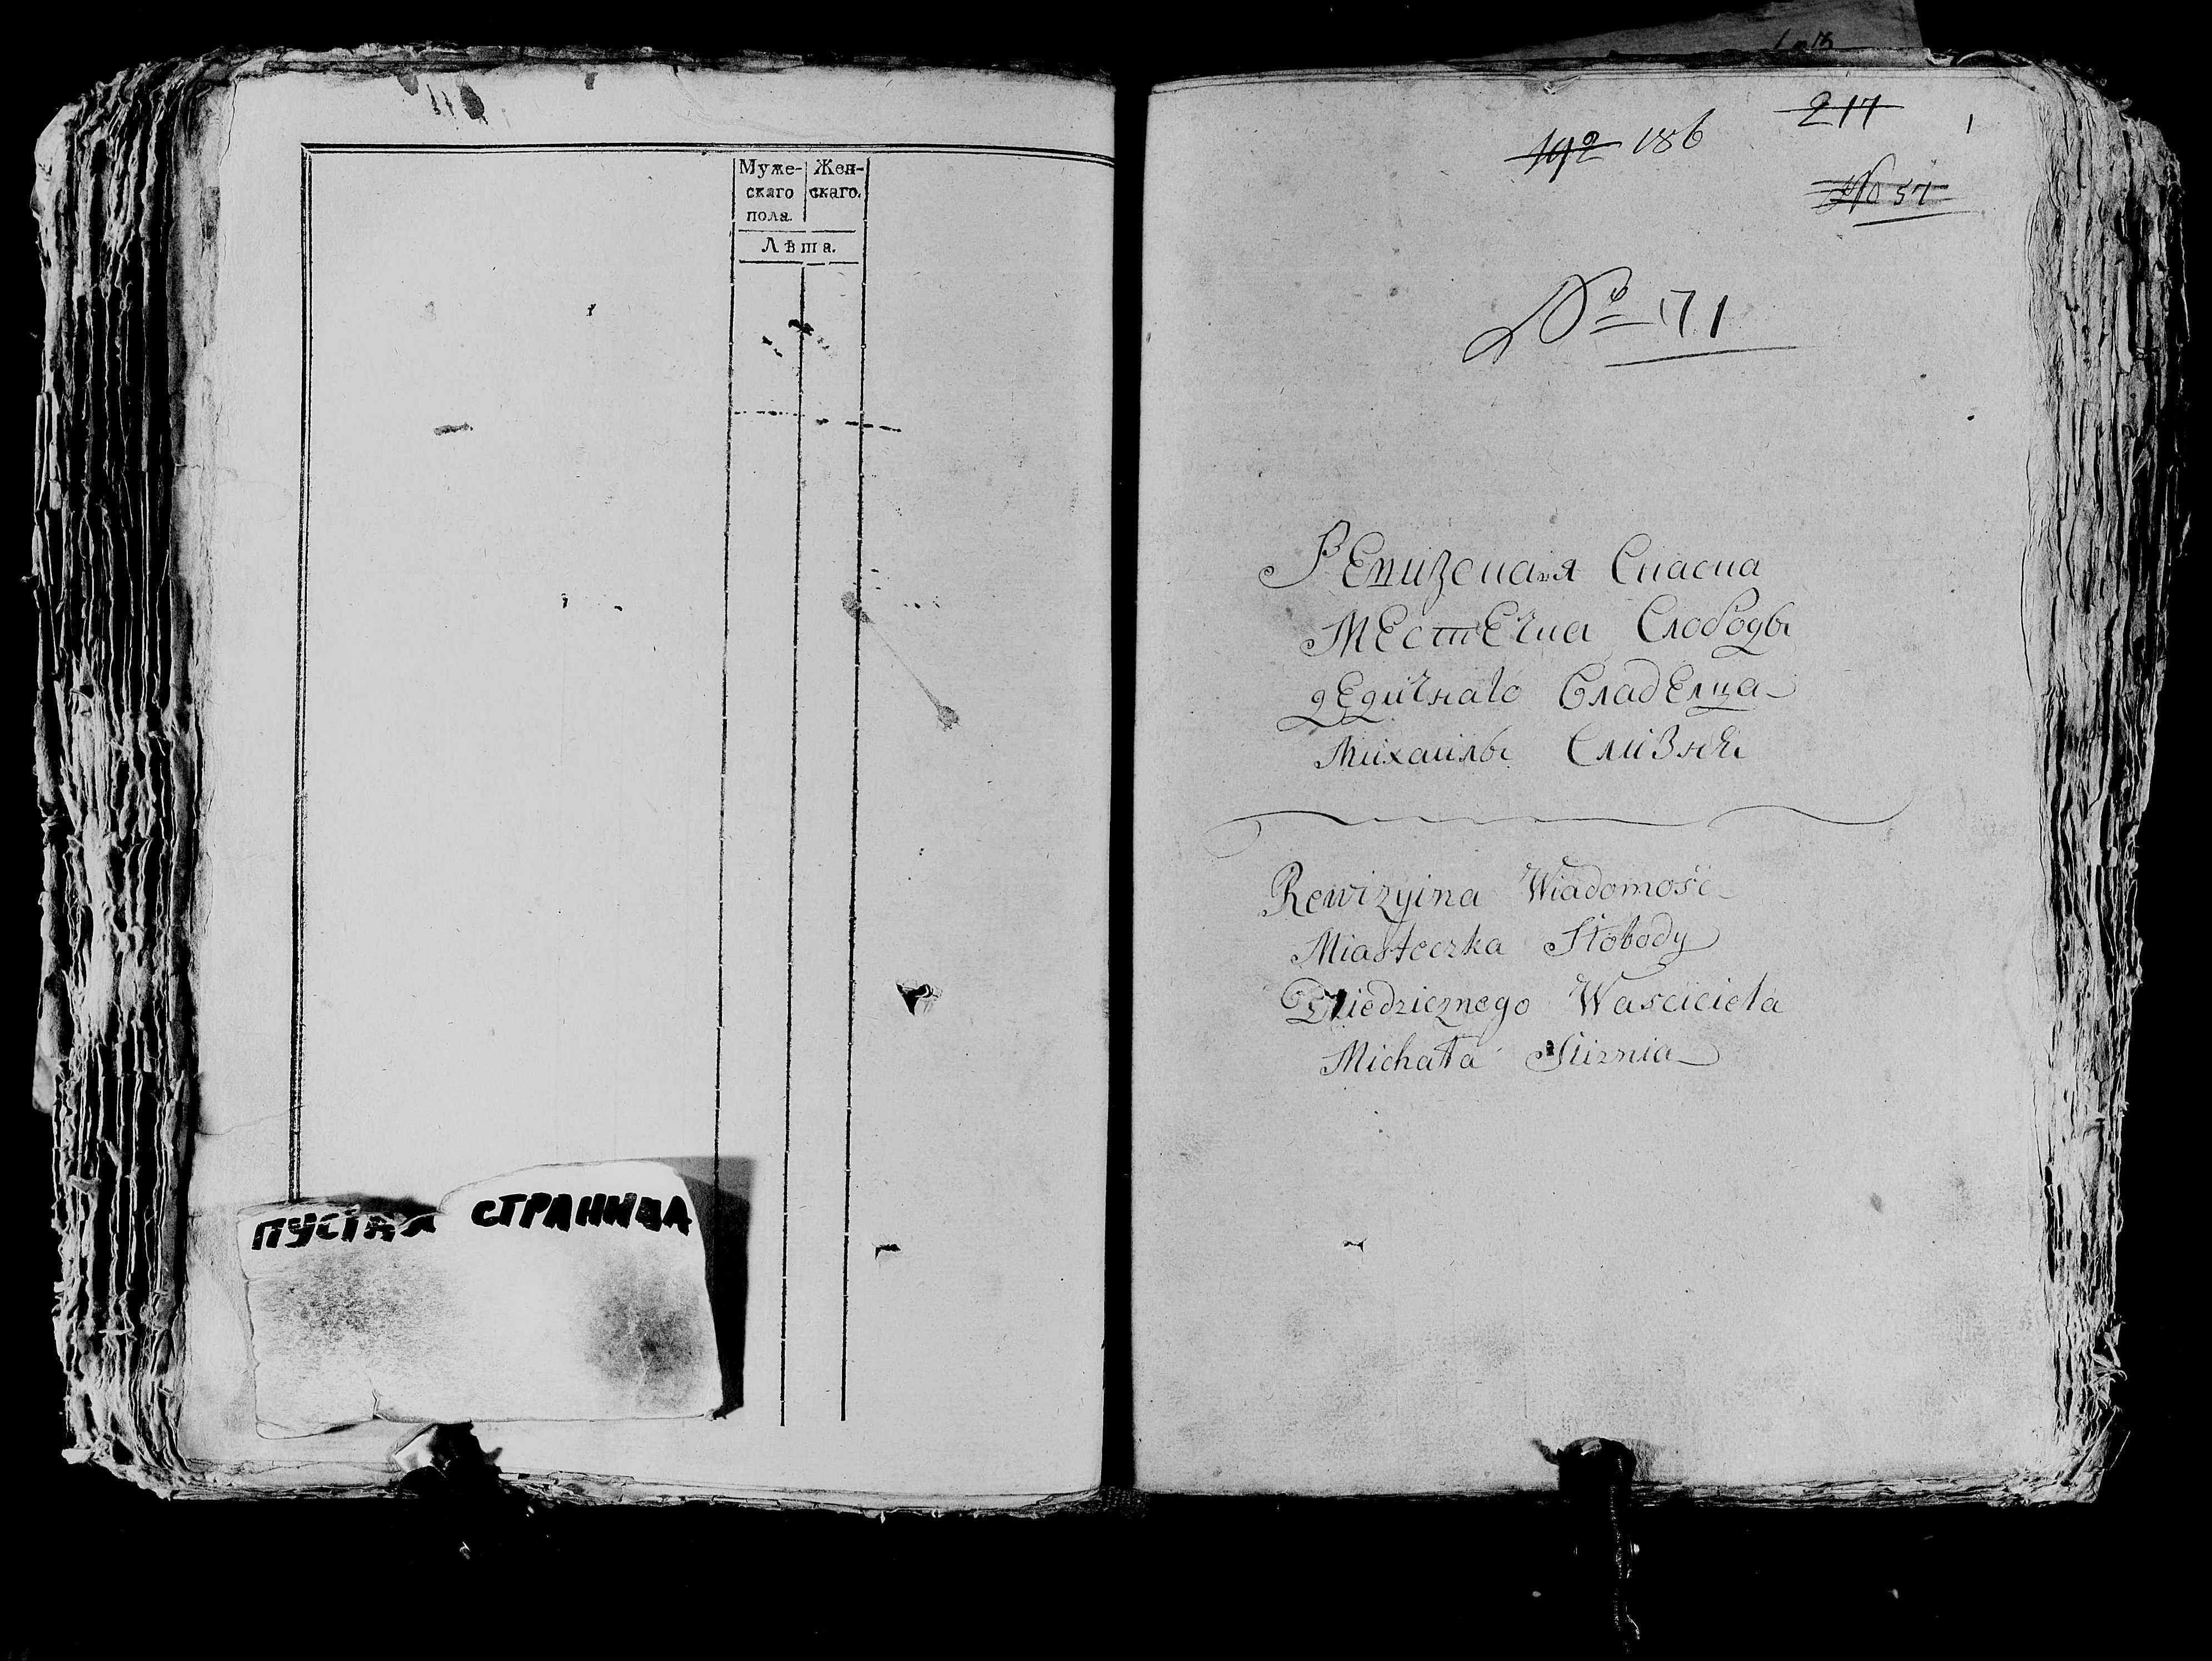 Муже- Жен-
скаго скаго.
пола.
Лѣта.
ПУСТАЯ СТРАНИЦА
217
192 186
1
№ 57
№ 171
Ревизская Список
Местечка Слободы
дедичнаго владелца
Михаилы Слизня
Rewizyina Wiadomość
Miasteczka Słobody
Dziedzicznego Waściciela
Michała Sliznia